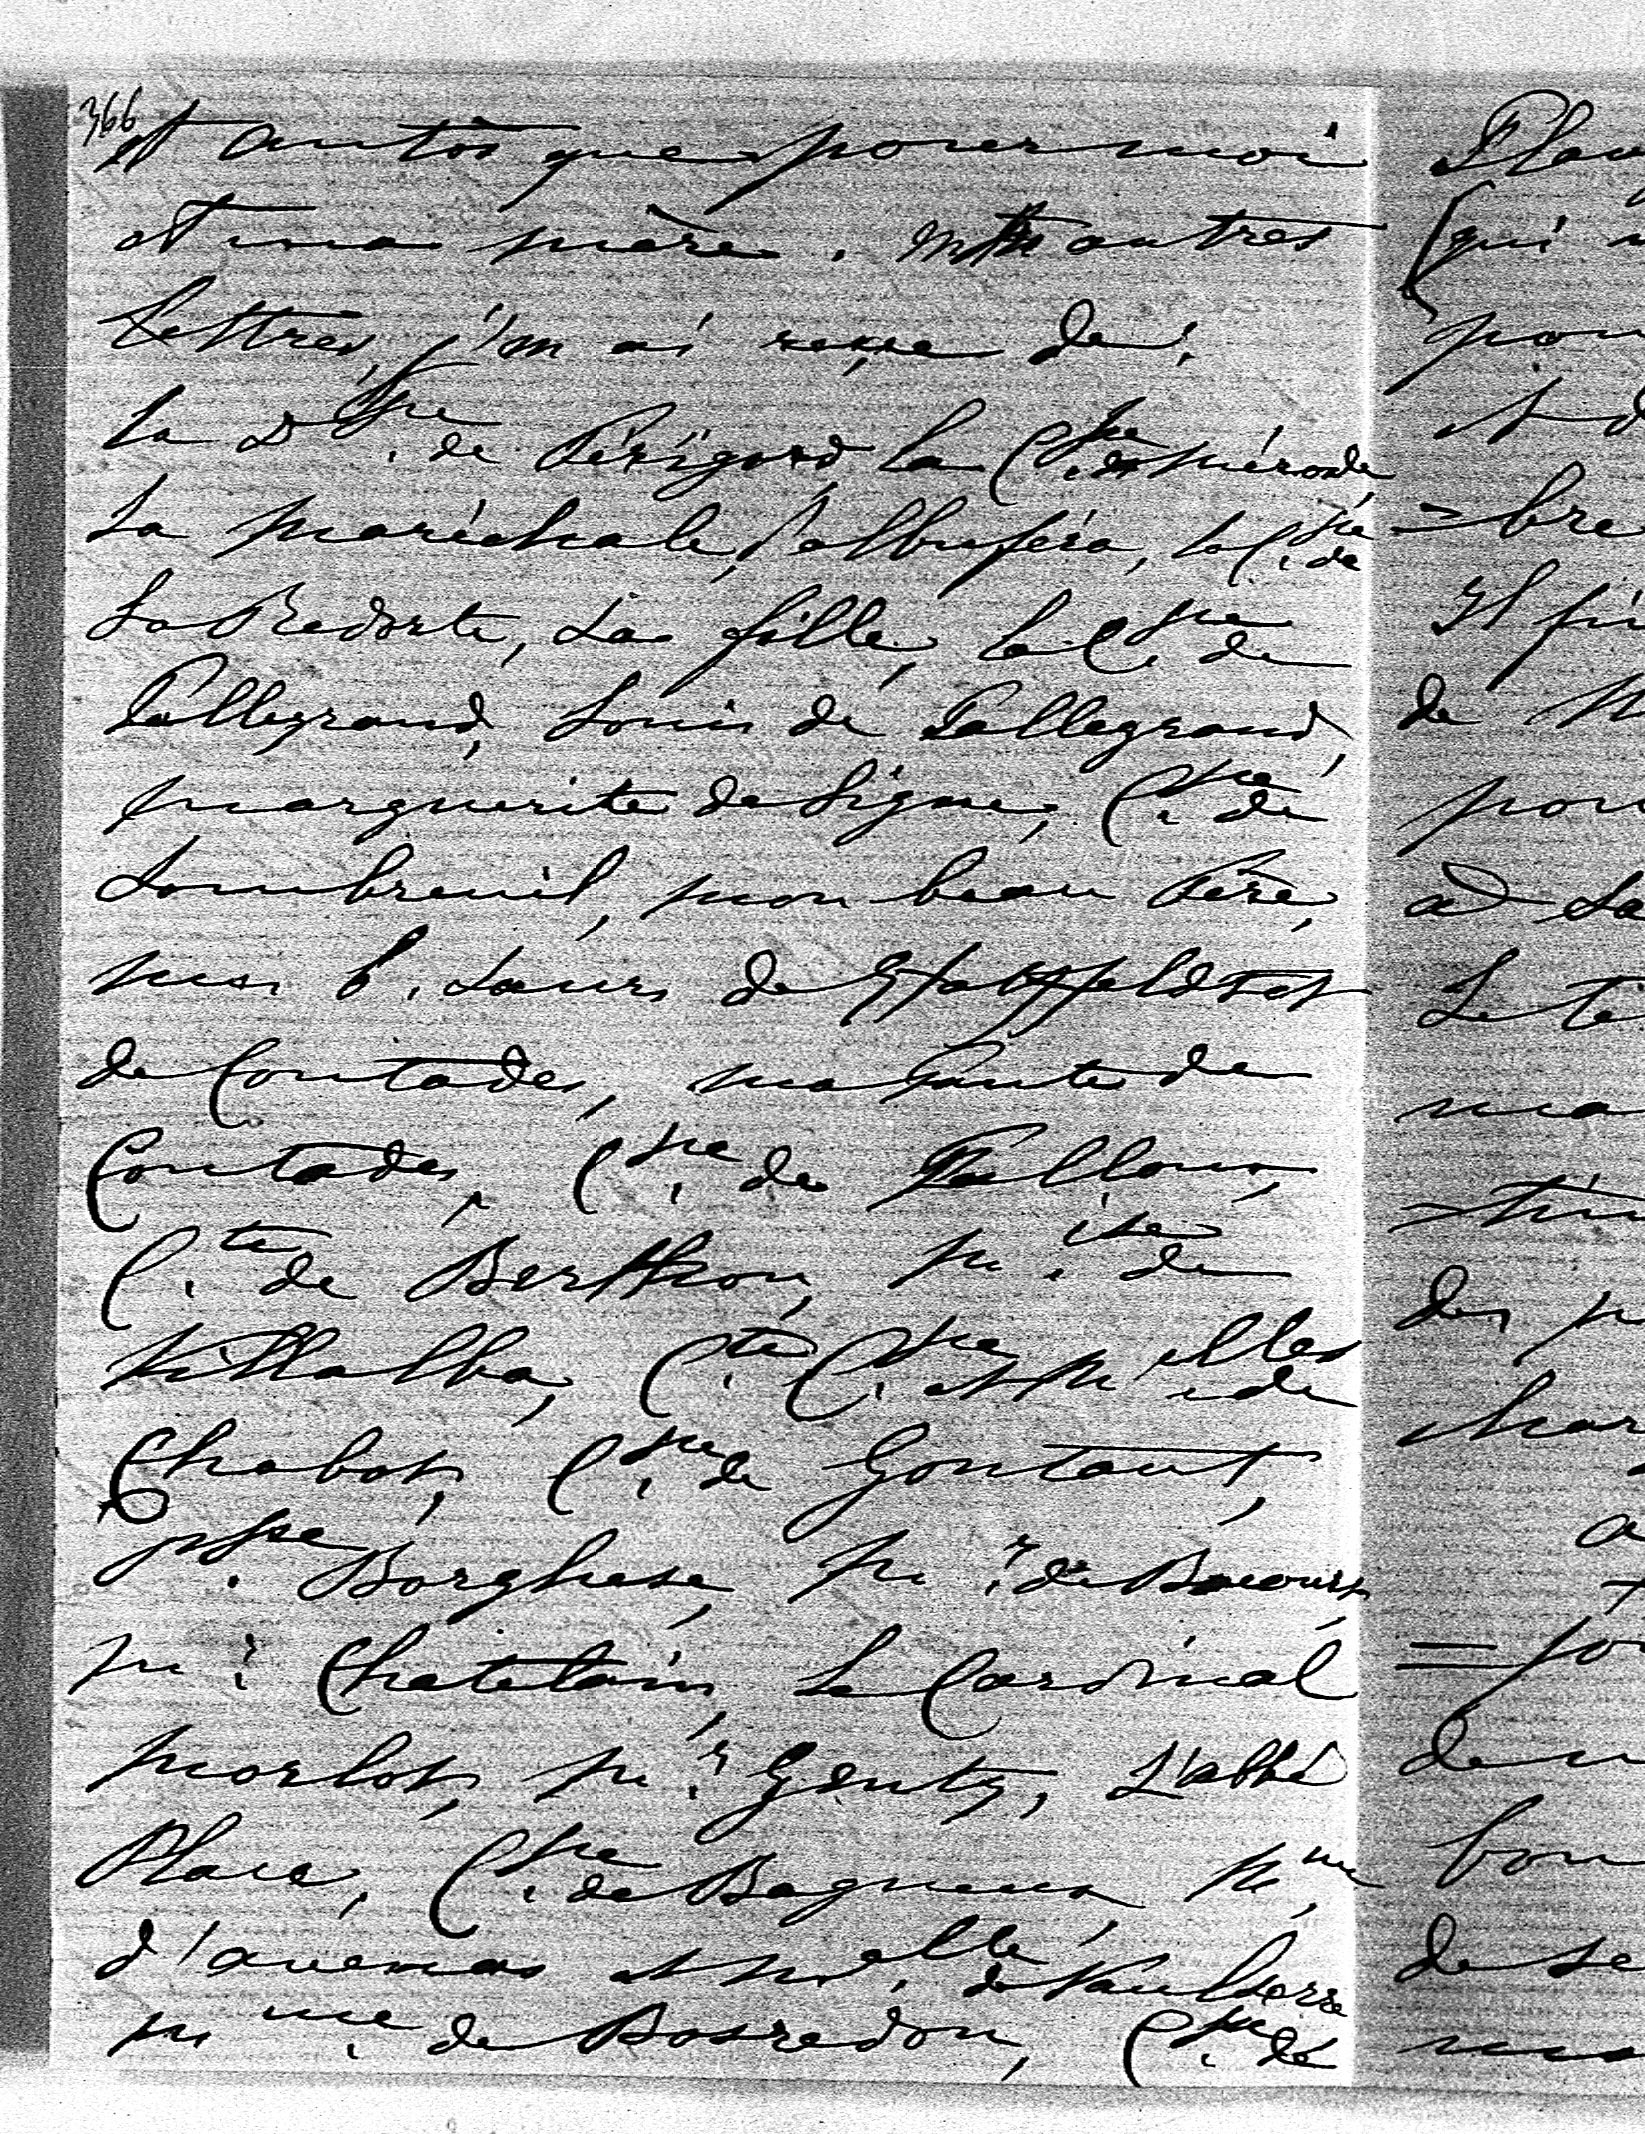 366
et autres que pour moi
et ma mère. autres
Lettres, j'en ai reçue de:
La Dsse. de Périgord, la Ctsse. de Mérode
La Maréchale d'albuféra, la Ctsse. de
La Redorte, sa fille, la Ctsse. de
Pallegrand, Louis de Pallegrand,
marguerite de Ligne, Ctsse. de
Sombreuil, mon beau Père,
mes b. sœurs de Hatzfeldt et
de Contades, ma Tante de
Contades, Ctsse. de Falloux,
Cte. de Berthou, Mise. de
Villalba, Cte. Ctsse. et Melles. de
Chabot, Ctsse. de Gontaut,
Psse. Borghese, Mr. de Bacourt,
Mr. Chatelain, Le Cardinal
Morlot, Mr. Genty, L'abbé
Place, Ctsse. de Bagneux, Mme.
d'avenas et Melle. de Vaulserre
Mme. de Bosredon, Ctsse. de
qui
pou
et d
= bre
Il fu
de M
pou
ad sa
Le te
ma
des p
char
a
de
bon
de se